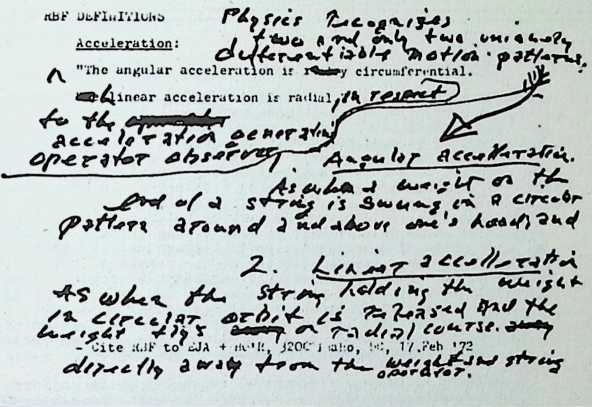 RBF DEFINITIONS
Physics Recognizes
two and only two uniquely
differentiable motion patterns.
Acceleration:
"The angular acceleration is circumferential.
linear acceleration is radial, in respect
to the
acceleration generating
operator observer
Angular accelleration.
As when a weight on the
end of a string is swung in a circular
pattern around and above one's head, and
2. Linear accelleration
As when the string holding the weight
in circular orbit is released and the
weight flys on radial course.
- Cite RBF to EJA + 3200 Idaho, DC, 17 Feb '72
directly away from the weight and string
operator.